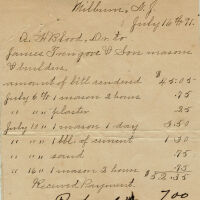 Milburn, N.J.
July 16th 91.
A. H. Blood, Dr. to
James Trengove & Son masons
& builders.
amount of bill rendered $45.05
July 6th 1 mason 2 hours .75
" " plaster .25
July 10 " 1 mason 1 day 3.50
" " " 1 bbl. of cement 1.30
" " " sand .75
" 16 " 1 mason 2 hours .75
$52.35
Received Payment.
7.00